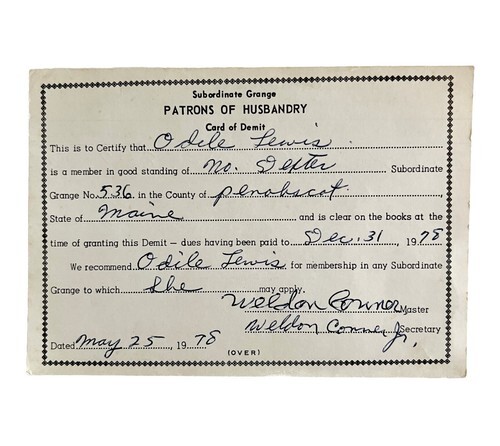 Subordinate Grange
PATRONS OF HUSBANDRY
Card of Demit
This is to Certify that Odile Lewis
is a member in good standing of No. Dexter Subordinate
Grange No. 536 in the County of Penobscot
State of Maine and is clear on the books at the
time of granting this Demit — dues having been paid to Dec. 31, 1978
We recommend Odile Lewis for membership in any Subordinate
Grange to which She may apply.
Weldon Conner Master
Weldon Conner Jr. Secretary
Dated May 25, 1978
(OVER)